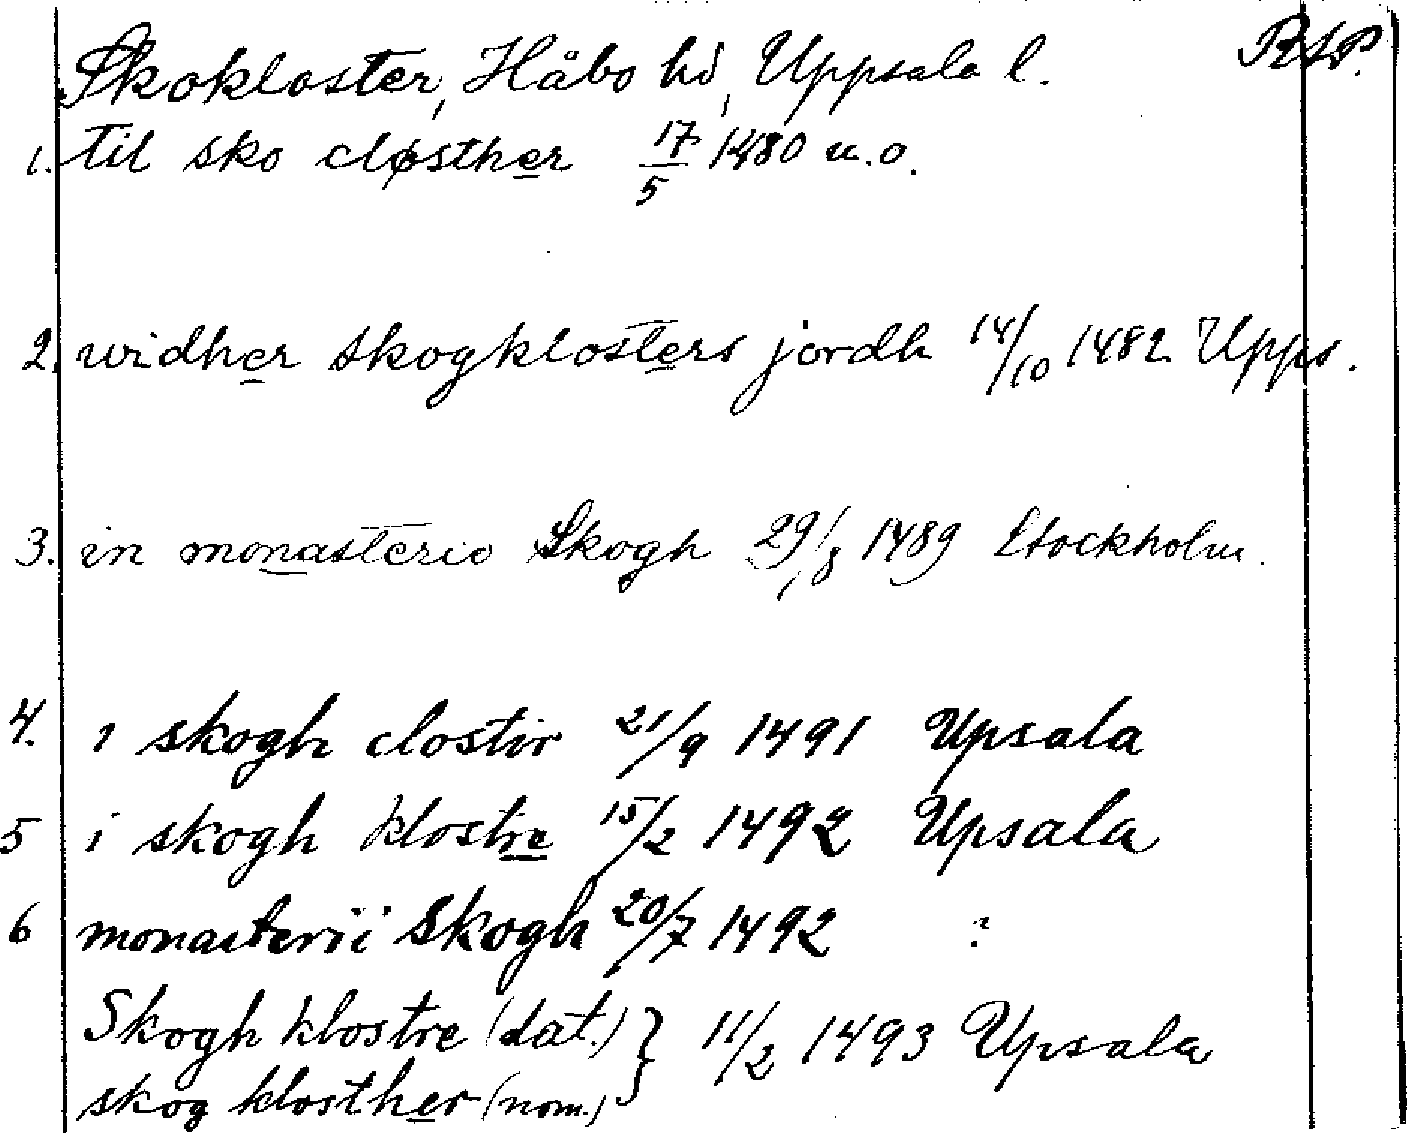 Skokloster, Håbo hd, Uppsala l. RAP.
1. til sko closther 17/5 1480 u.o.
2. widher skogklosters jordh 14/10 1482 Upps.
3. in monasterio Skogh 29/8 1489 Stockholm.
4. i skogh clostir 21/9 1491 Upsala
5 i skogh klostre 15/2 1492 Upsala
6 monasterii Skogh 20/7 1492 ?
Skogh klostre (dat.) } 11/2 1493 Upsala
skog klosther (nom.)